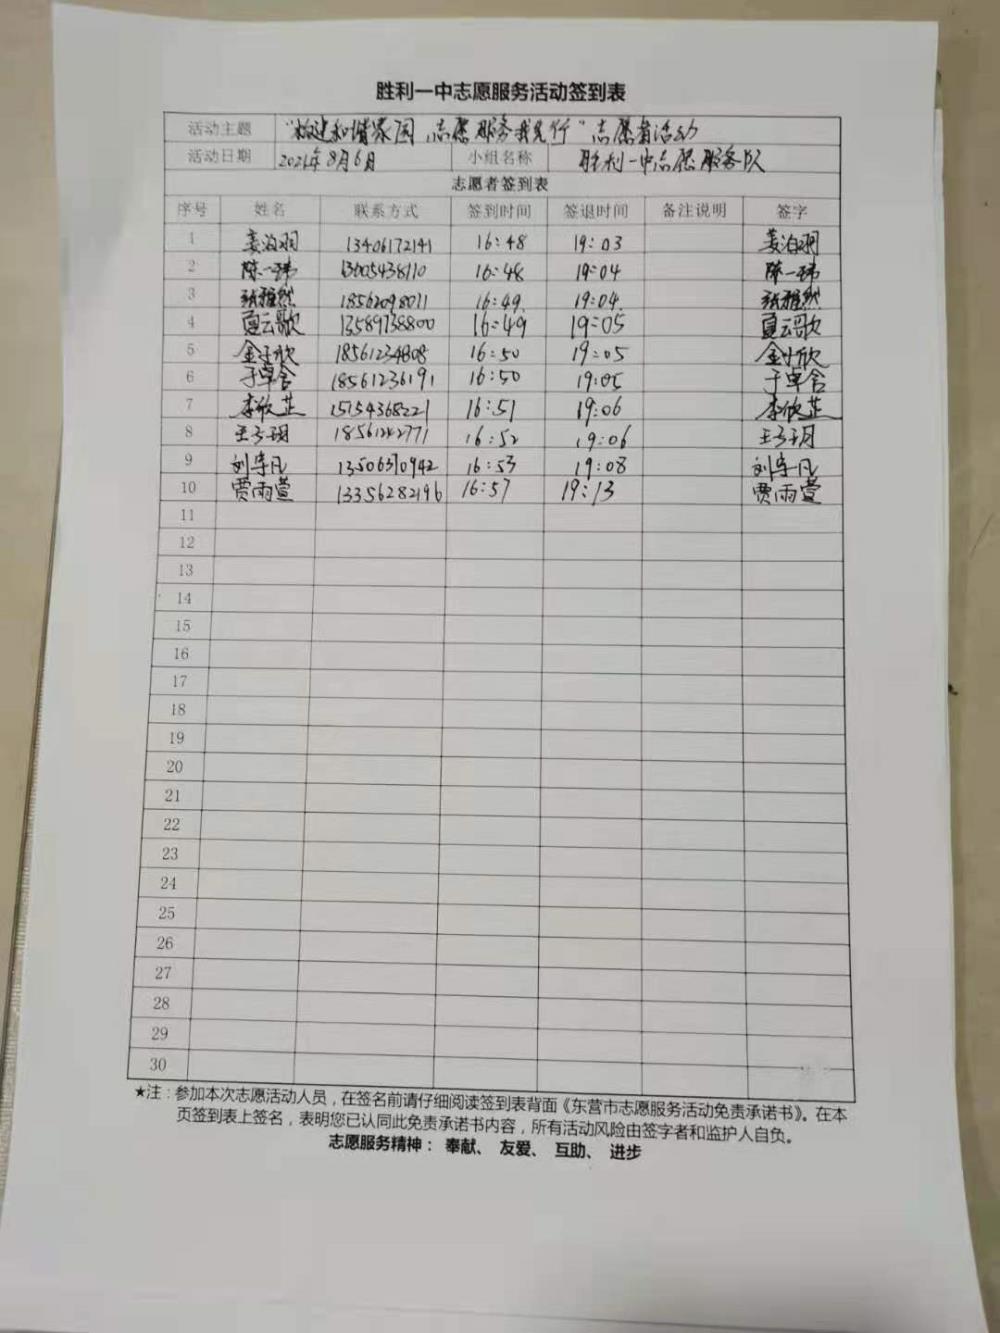 胜利一中志愿服务活动签到表
活动主题 "构建和谐家园,志愿服务我先行"志愿者活动
活动日期 2021年8月6日 小组名称 胜利一中志愿服务队
志愿者签到表
序号 姓名 联系方式 签到时间 签退时间 备注说明 签字
1 姜泊羽 13406172141 16:48 19:03 姜泊羽
2 陈一玮 13005438110 16:48 19:04 陈一玮
3 张雅然 18562098011 16:49 19:04 张雅然
4 夏云歌 13589738800 16:49 19:05 夏云歌
5 金子欣 18561234808 16:50 19:05 金子欣
6 于卓含 18561236191 16:50 19:05 于卓含
7 李欣芷 15154368221 16:51 19:06 李欣芷
8 王子玥 18561242771 16:52 19:06 王子玥
9 刘宇凡 13506370942 16:53 19:08 刘宇凡
10 贾雨萱 13356282196 16:57 19:13 贾雨萱
11
12
13
14
15
16
17
18
19
20
21
22
23
24
25
26
27
28
29
30
★注:参加本次志愿活动人员,在签名前请仔细阅读签到表背面《东营市志愿服务活动免责承诺书》。在本
页签到表上签名,表明您已认同此免责承诺书内容,所有活动风险由签字者和监护人自负。
志愿服务精神: 奉献、 友爱、 互助、 进步